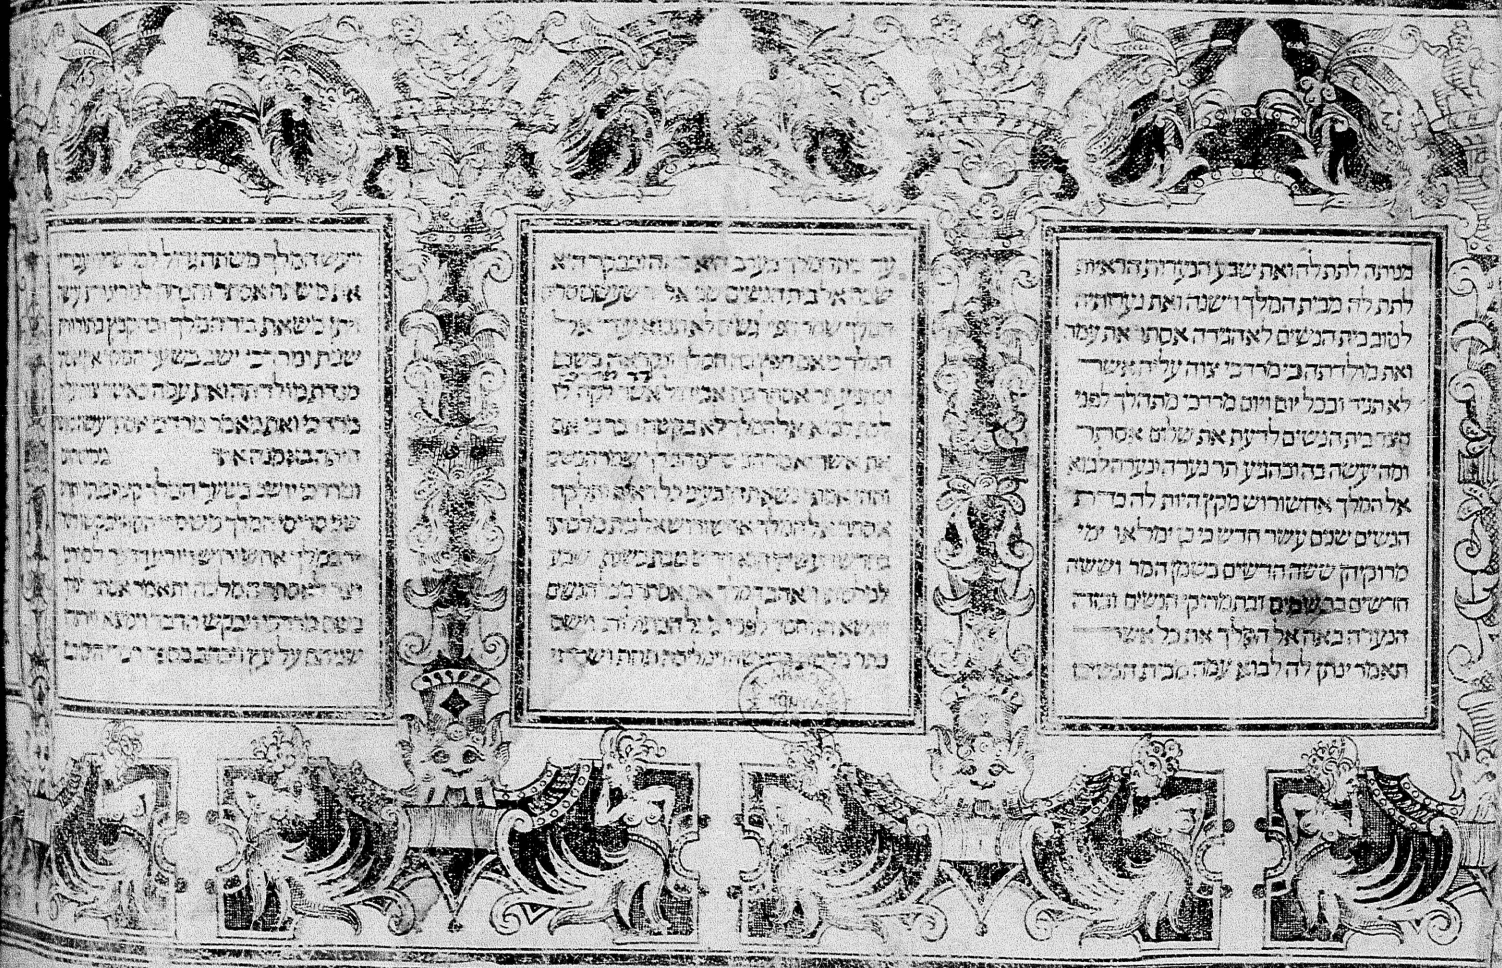 מנותה לתת לה ואת שבע הנערות הראיות
לתת לה מבית המלך וישנה ואת נערותיה
לטוב בית הנשים לא הגידה אסתר את עמה
ואת מולדתה כי מרדכי צוה עליה אשר
לא תגיד ובכל יום ויום מרדכי מתהלך לפני
חצר בית הנשים לדעת את שלום אסתר
ומה יעשה בה ובהגיע תר נערה ונערה לבוא
אל המלך אחשורוש מקץ היות לה כדת
הנשים שנים עשר חדש כי כן ימלאו ימי
מרוקיהן ששה חדשים בשמן המר וששה
חדשים בבשמים ובתמרוקי הנשים ובזה
הנערה באה אל המלך את כל אשר
תאמר ינתן לה לבוא עמה מבית הנשים
עד בית המלך בערב היא באה ובבקר היא
שבה אל בית הנשים שני אל יד שעשגז סריס
המלך שמר הפילגשים לא תבוא עוד אל
המלך כי אם חפץ בה המלך ונקראה בשם
דד מרדכי
ובהגיע תר אסתר בת אביחיל אשר לקח לו
לבת לבוא אל המלך לא בקשה דבר כי אם
את אשר יאמר הגי סריס המלך שמר הנשים
ותהי אסתר נשאת חן בעיני כל ראיה ותלקח
אסתר אל המלך אחשורוש אל בית מלכותו
בחדש העשירי הוא חדש טבת בשנת שבע
למלכותו ויאהב המלך את אסתר מכל הנשים
ותשא חן וחסד לפניו מכל הבתולות וישם
כתר מלכות בראשה וימליכה תחת ושתי
ויעש המלך משתה גדול לכל שריו ועבדיו
את משתה אסתר והנחה למדינות עשה
ויתן משאת כיד המלך ובהקבץ בתולות
שנית ומרדכי ישב בשער המלך אין אסתר
מגדת מולדתה ואת עמה כאשר צוה עליה
מרדכי ואת מאמר מרדכי אסתר עשה
היתה באמנה אתו
ומרדכי יושב בשער המלך קצף בגתן ותרש
שני סריסי המלך משמרי הסף ויבקשו לשלח
יד במלך אחשורוש ויודע הדבר למרדכי
ויגד לאסתר המלכה ותאמר אסתר למלך
בשם מרדכי ויבקש הדבר וימצא ויתלו
שניהם על עץ ויכתב בספר דברי הימים